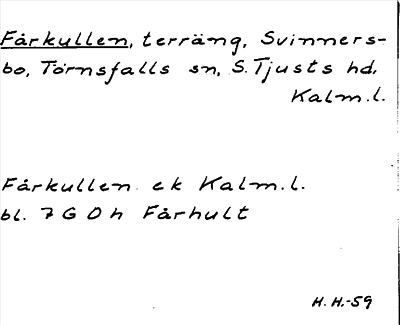 Fårkullen, terräng, Svinners-
bo, Törnsfalls sn, S. Tjusts hd,
Kalm. l.
Fårkullen ek Kalm. l.
bl. 7 G 0 h Fårhult
H. H. -59